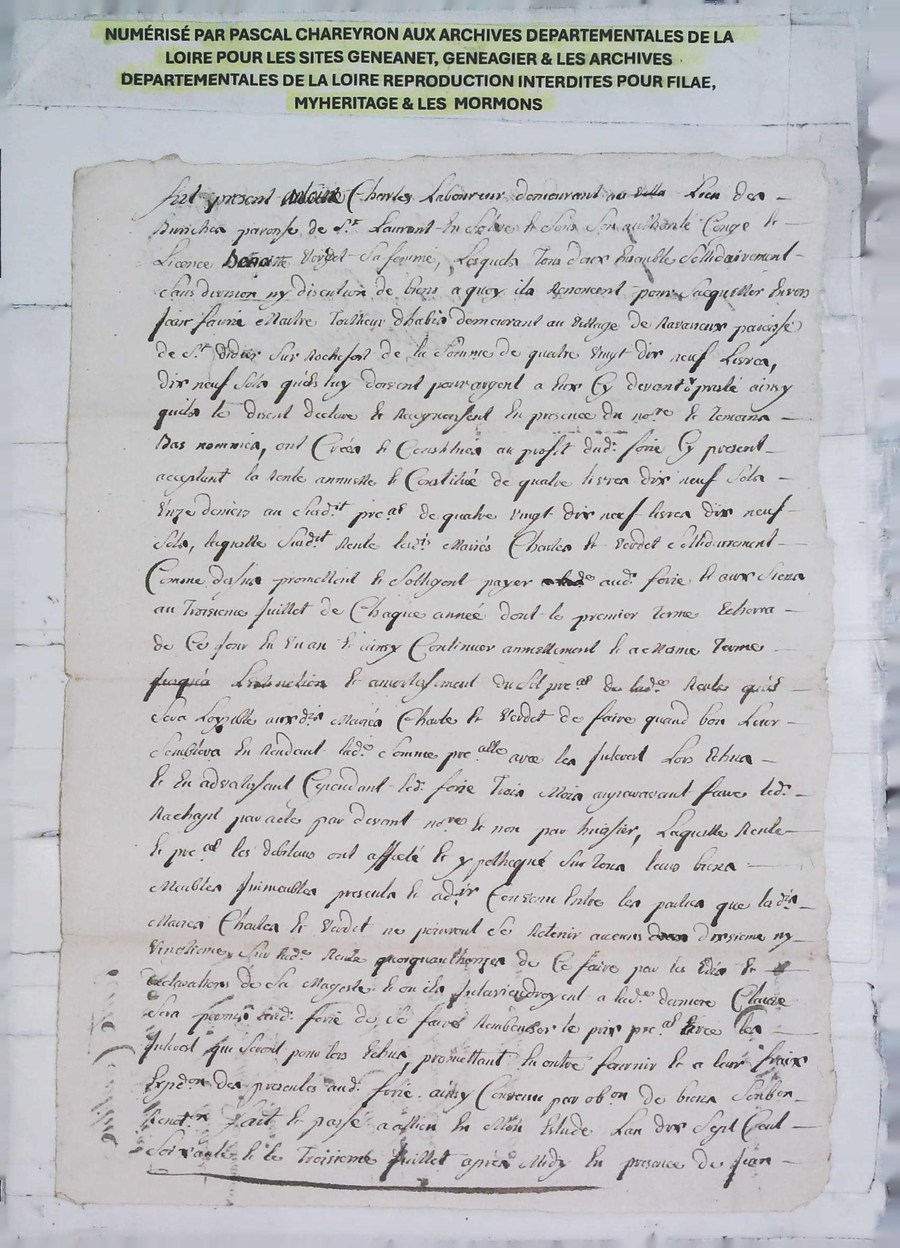 NUMÉRISÉ PAR PASCAL CHAREYRON AUX ARCHIVES DEPARTEMENTALES DE LA
LOIRE POUR LES SITES GENEANET, GENEAGIER & LES ARCHIVES
DEPARTEMENTALES DE LA LOIRE REPRODUCTION INTERDITES POUR FILAE,
MYHERITAGE & LES MORMONS
fut present antoine Charles Laboureur demeurant au Lieu des
paroisse de St Laurent En Solore Et Sous Son authorité Congé Et
Licence Benoite Verdet Sa femme, Lesquels Tous deux Ensemble Sollidairement
Sans division ny discution de biens a quoy ils Renoncent pour Sacquitter Envers
Jean Maitre Tailheur dhabis demeurant au Village de paroisse
de St didier Sur Rochefort de la Somme de quatre Vingt dix neuf Livres,
dix neuf Sols quils luy doivent pour argent a Eux Cy devant presté ainsy
quils le disent declare Et Reconoissent En presence du nore Et Temoins
Bas nommés, ont Créés Et Constitués au profit dudt forie Cy present
acceptant la Rente annuelle Et Constitué de quatre livres dix neuf Sols
Unze deniers au Susdit pral de quatre Vingt dix neuf livres dix neuf
Sols, laquelle Susdit Rente lesdts Mariés Charles Et Verdet Sollidairement
Comme dessus promettent Et Sobligent payer audt forie Et aux Siens
au Troisieme Juillet de Chaque année dont le premier Terme Echerra
de Ce jour En Un an Et ainsy Continuer annuellement Et a meme Terme
jusqua Lextinction Et amortissement du Sel pral de ladte Rente quil
Sera Loysible auxdts Mariés Charle Et Verdet de faire quand bon Leur
Semblera En Rendant ladte Somme pralle avec les Interest Lors Echus
Et En advertissant Cependant ledt forie Trois Mois auparavant faire ledt
Rachapt par acte par devant nore Et non par huissier, Laquelle Rente
Et pral les debiteurs ont affecté Et ypothequé Sur Tous leurs biens
Meubles Immeubles presents Et advir Convenu Entre les parties que lesdts
Mariés Charles Et Verdet ne pouront Se Retenir aucuns dixieme ny
Vingtieme Sur ladte Rente quoiquauthorisés de Ce faire par les Edits Et
declarations de Sa Majesté Et ou ils a ladte derniere Clause
Sera permis audt forie de Se faire Rembourser le prix pral avec les
Interest qui Seront pour lors Echus, promettant En outre fournir Et a leur fraix
Expeon des presentes audt forie ainsy Convenu par obon de biens
fait Et passé En Mon Etude Lan dix Sept Cent
Soixante Et le Troisieme Juillet apres Midy En presence de Jean